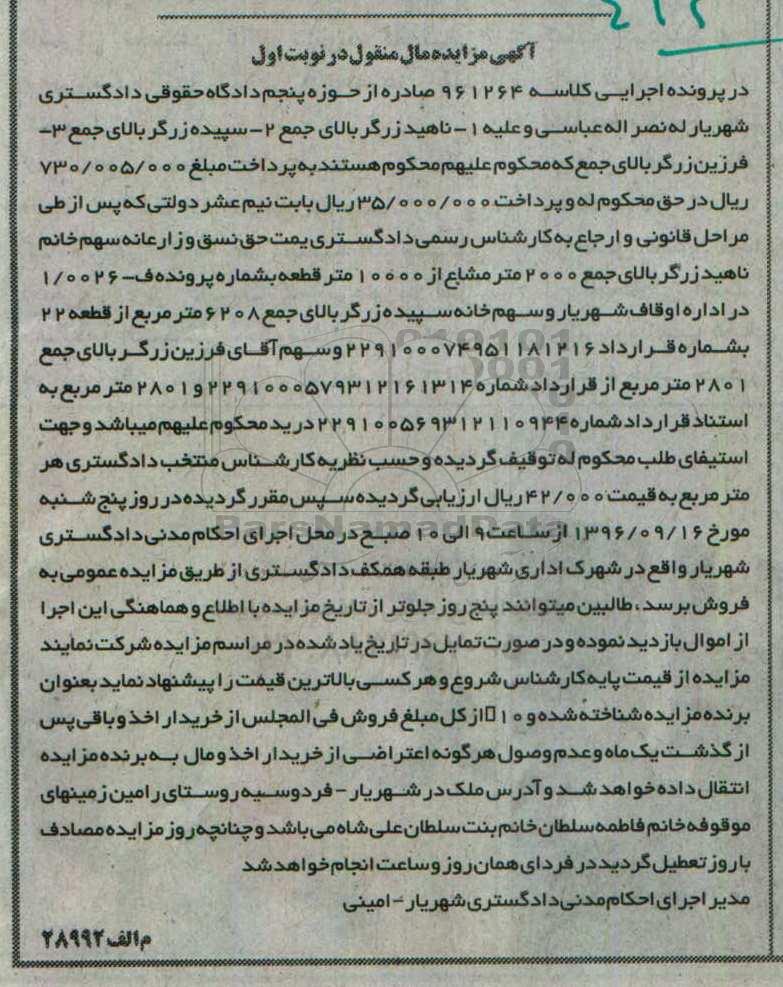 آگهی مزایده مال منقول در نوبت اول
در پرونده اجرایی کلاسه ۹۶۱۲۶۴ صادره از حوزه پنجم دادگاه حقوقی دادگستری
شهریار له نصر اله عباسی و علیه ۱- ناهید زرگر بالای جمع ۲- سپیده زرگر بالای جمع ۳-
فرزین زرگر بالای جمع که محکوم علیهم محکوم هستند به پرداخت مبلغ ۷۳۰/۰۰۵/۰۰۰
ریال در حق محکوم له و پرداخت ۳۵/۰۰۰/۰۰۰ ریال بابت نیم عشر دولتی که پس از طی
مراحل قانونی و ارجاع به کارشناس رسمی دادگستری یمت حق نسق و زارعانه سهم خانم
ناهید زرگر بالای جمع ۲۰۰۰ متر مشاع از ۱۰۰۰۰ متر قطعه بشماره پرونده ف-۱/۰۰۲۶
در اداره اوقاف شهریار و سهم خانه سپیده زرگر بالای جمع ۶۲۰۸ متر مربع از قطعه ۲۲
بشماره قرارداد ۲۲۹۱۰۰۰۷۴۹۵۱۱۸۱۲۱۶ و سهم آقای فرزین زرگر بالای جمع
۲۸۰۱ متر مربع از قرارداد شماره ۲۲۹۱۰۰۰۵۷۹۳۱۲۱۶۱۳۱۴ و ۲۸۰۱ متر مربع به
استناد قرارداد شماره ۲۲۹۱۰۰۵۶۹۳۱۲۱۱۰۹۴۴ در ید محکوم علیهم میباشد و جهت
استیفای طلب محکوم له توقیف گردیده و حسب نظریه کارشناس منتخب دادگستری هر
متر مربع به قیمت ۴۲/۰۰۰ ریال ارزیابی گردیده سپس مقرر گردیده در روز پنج شنبه
مورخ ۱۳۹۶/۰۹/۱۶ از ساعت ۹ الی ۱۰ صبح در محل اجرای احکام مدنی دادگستری
شهریار واقع در شهرک اداری شهریار طبقه همکف دادگستری از طریق مزایده عمومی به
فروش برسد، طالبین میتوانند پنج روز جلوتر از تاریخ مزایده با اطلاع و هماهنگی این اجرا
از اموال بازدید نموده و در صورت تمایل در تاریخ یاد شده در مراسم مزایده شرکت نمایند
مزایده از قیمت پایه کارشناس شروع و هر کسی بالاترین قیمت را پیشنهاد نماید بعنوان
برنده مزایده شناخته شده و ۱۰ از کل مبلغ فروش فی المجلس از خریدار اخذ و باقی پس
از گذشت یک ماه و عدم وصول هرگونه اعتراضی از خریدار اخذ و مال به برنده مزایده
انتقال داده خواهد شد و آدرس ملک در شهریار - فردوسیه روستای رامین زمینهای
موقوفه خانم فاطمه سلطان خانم بنت سلطان علی شاه می باشد و چنانچه روز مزایده مصادف
با روز تعطیل گردید در فردای همان روز و ساعت انجام خواهد شد
مدیر اجرای احکام مدنی دادگستری شهریار - امینی
م الف ۲۸۹۹۲